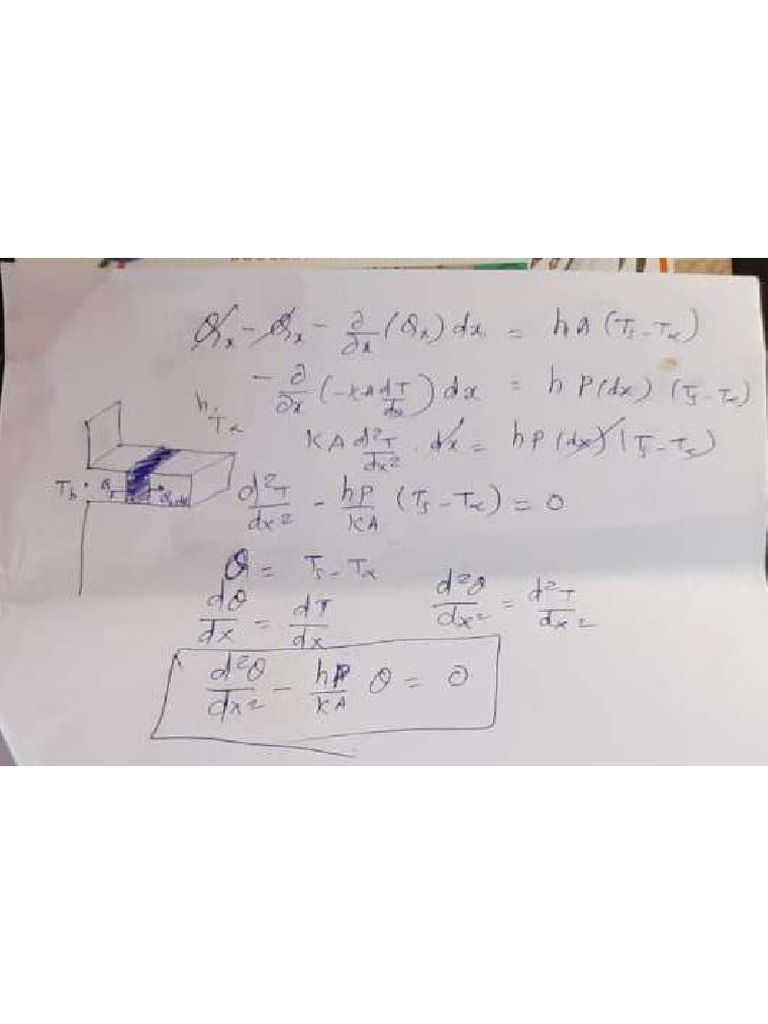 Q̶x - Q̶x - ∂/∂x (Qx) dx = hA (Ts - T∝)
- ∂/∂x (-KA dT/dx) dx = h P(dx) (Ts - T∝)
h, T∝
KA d²T/dx² . d̶x̶ = hP (d̶x̶) (Ts - Ts)
Tb Qx Qx+dx
d²T/dx² - hP/KA (Ts - T∝) = 0
θ = Ts - T∝
dθ/dx = dT/dx d²θ/dx² = d²T/dx²
d²θ/dx² - hP/KA θ = 0